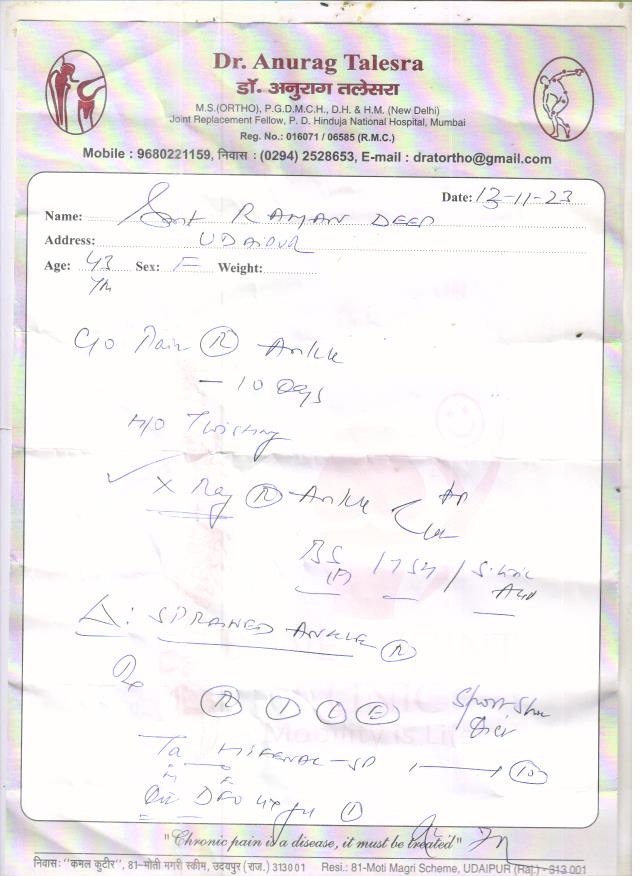 Dr. Anurag Talesra
डॉ. अनुराग तलेसरा
M.S.(ORTHO), P.G.D.M.C.H., D.H. & H.M. (New Delhi)
Joint Replacement Fellow, P. D. Hinduja National Hospital, Mumbai
Reg. No.: 016071 / 06585 (R.M.C.)
Mobile : 9680221159, निवास : (0294) 2528653, E-mail : dratortho@gmail.com
Date: 13-11-23
Name: Smt RAMAN DEEP
Address: UDAIPUR
Age: 43 Sex: F Weight:
Yrs
C/o Pain (R) Ankle
- 10 Days
H/O Twisting
X Ray (R) Ankle AP
Lat
BS (F) / / S. Uric Acid
Δ: SPRAINED ANKLE (R)
Rx
(R) (I) (C) (E) Sport Shoe
Diet
-SP 1 (10)
(1)
"Chronic pain is a disease, it must be treated"
निवास: "कमल कुटीर", 81-मोती मगरी स्कीम, उदयपुर (राज.) 313001 Resi.: 81-Moti Magri Scheme, UDAIPUR (Raj.) - 313 001